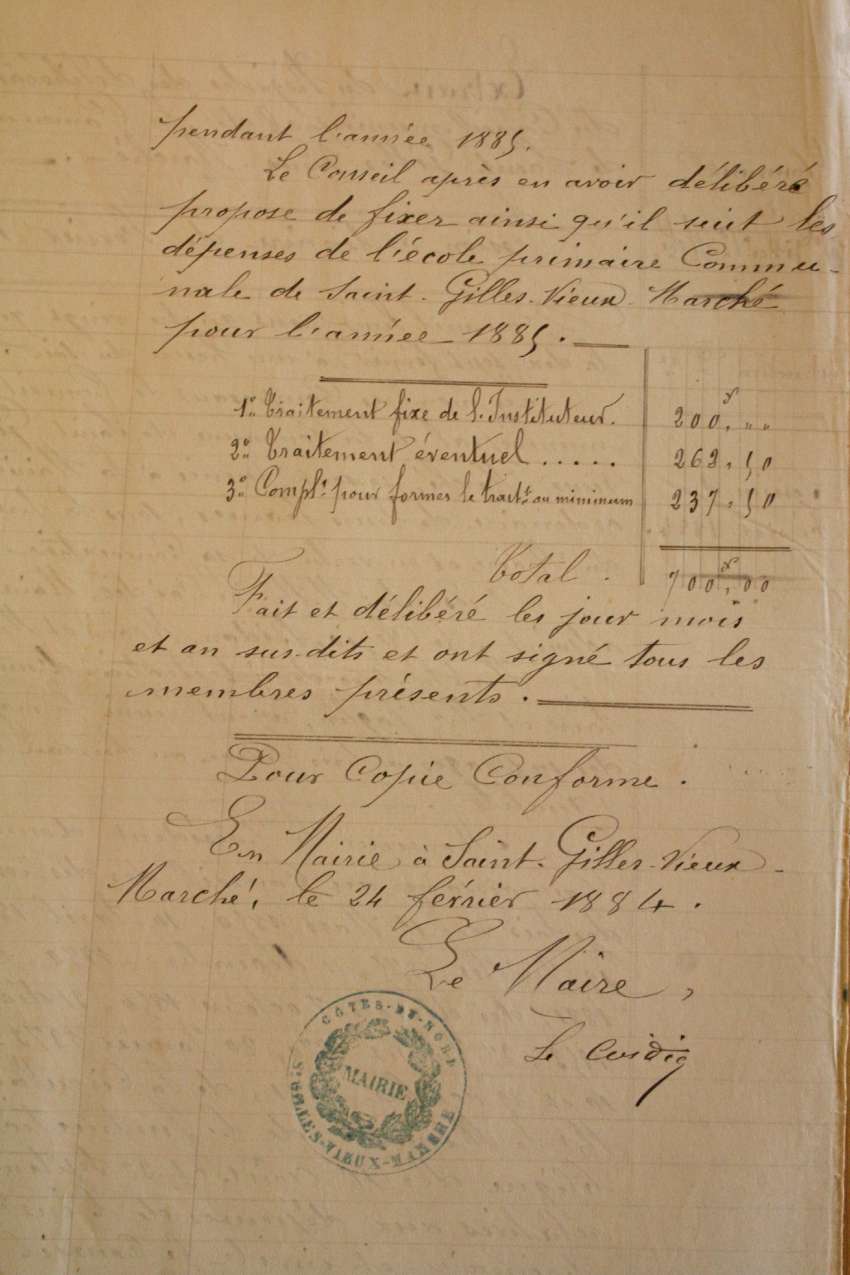 pendant l'année 1885.
Le Conseil après en avoir délibéré
propose de fixer ainsi qu'il suit les
dépenses de l'école primaire Commu-
nale de Saint-Gilles-Vieux-Marché
pour l'année 1885.
1º Traitement fixe de l'Instituteur. 200f, „ „
2º Traitement éventuel ..... 262,50
3º Complt pour former le traitt au miminum 237,50
Total. 700f,00
Fait et délibéré les jour mois
et an susdits et ont signé tous les
membres présents.
Pour Copie Conforme.
En Mairie à Saint-Gilles-Vieux-
Marché, le 24 février 1884.
Le Maire,
CÔTES-DU-NORD
MAIRIE
ST GILLES-VIEUX-MARCHÉ